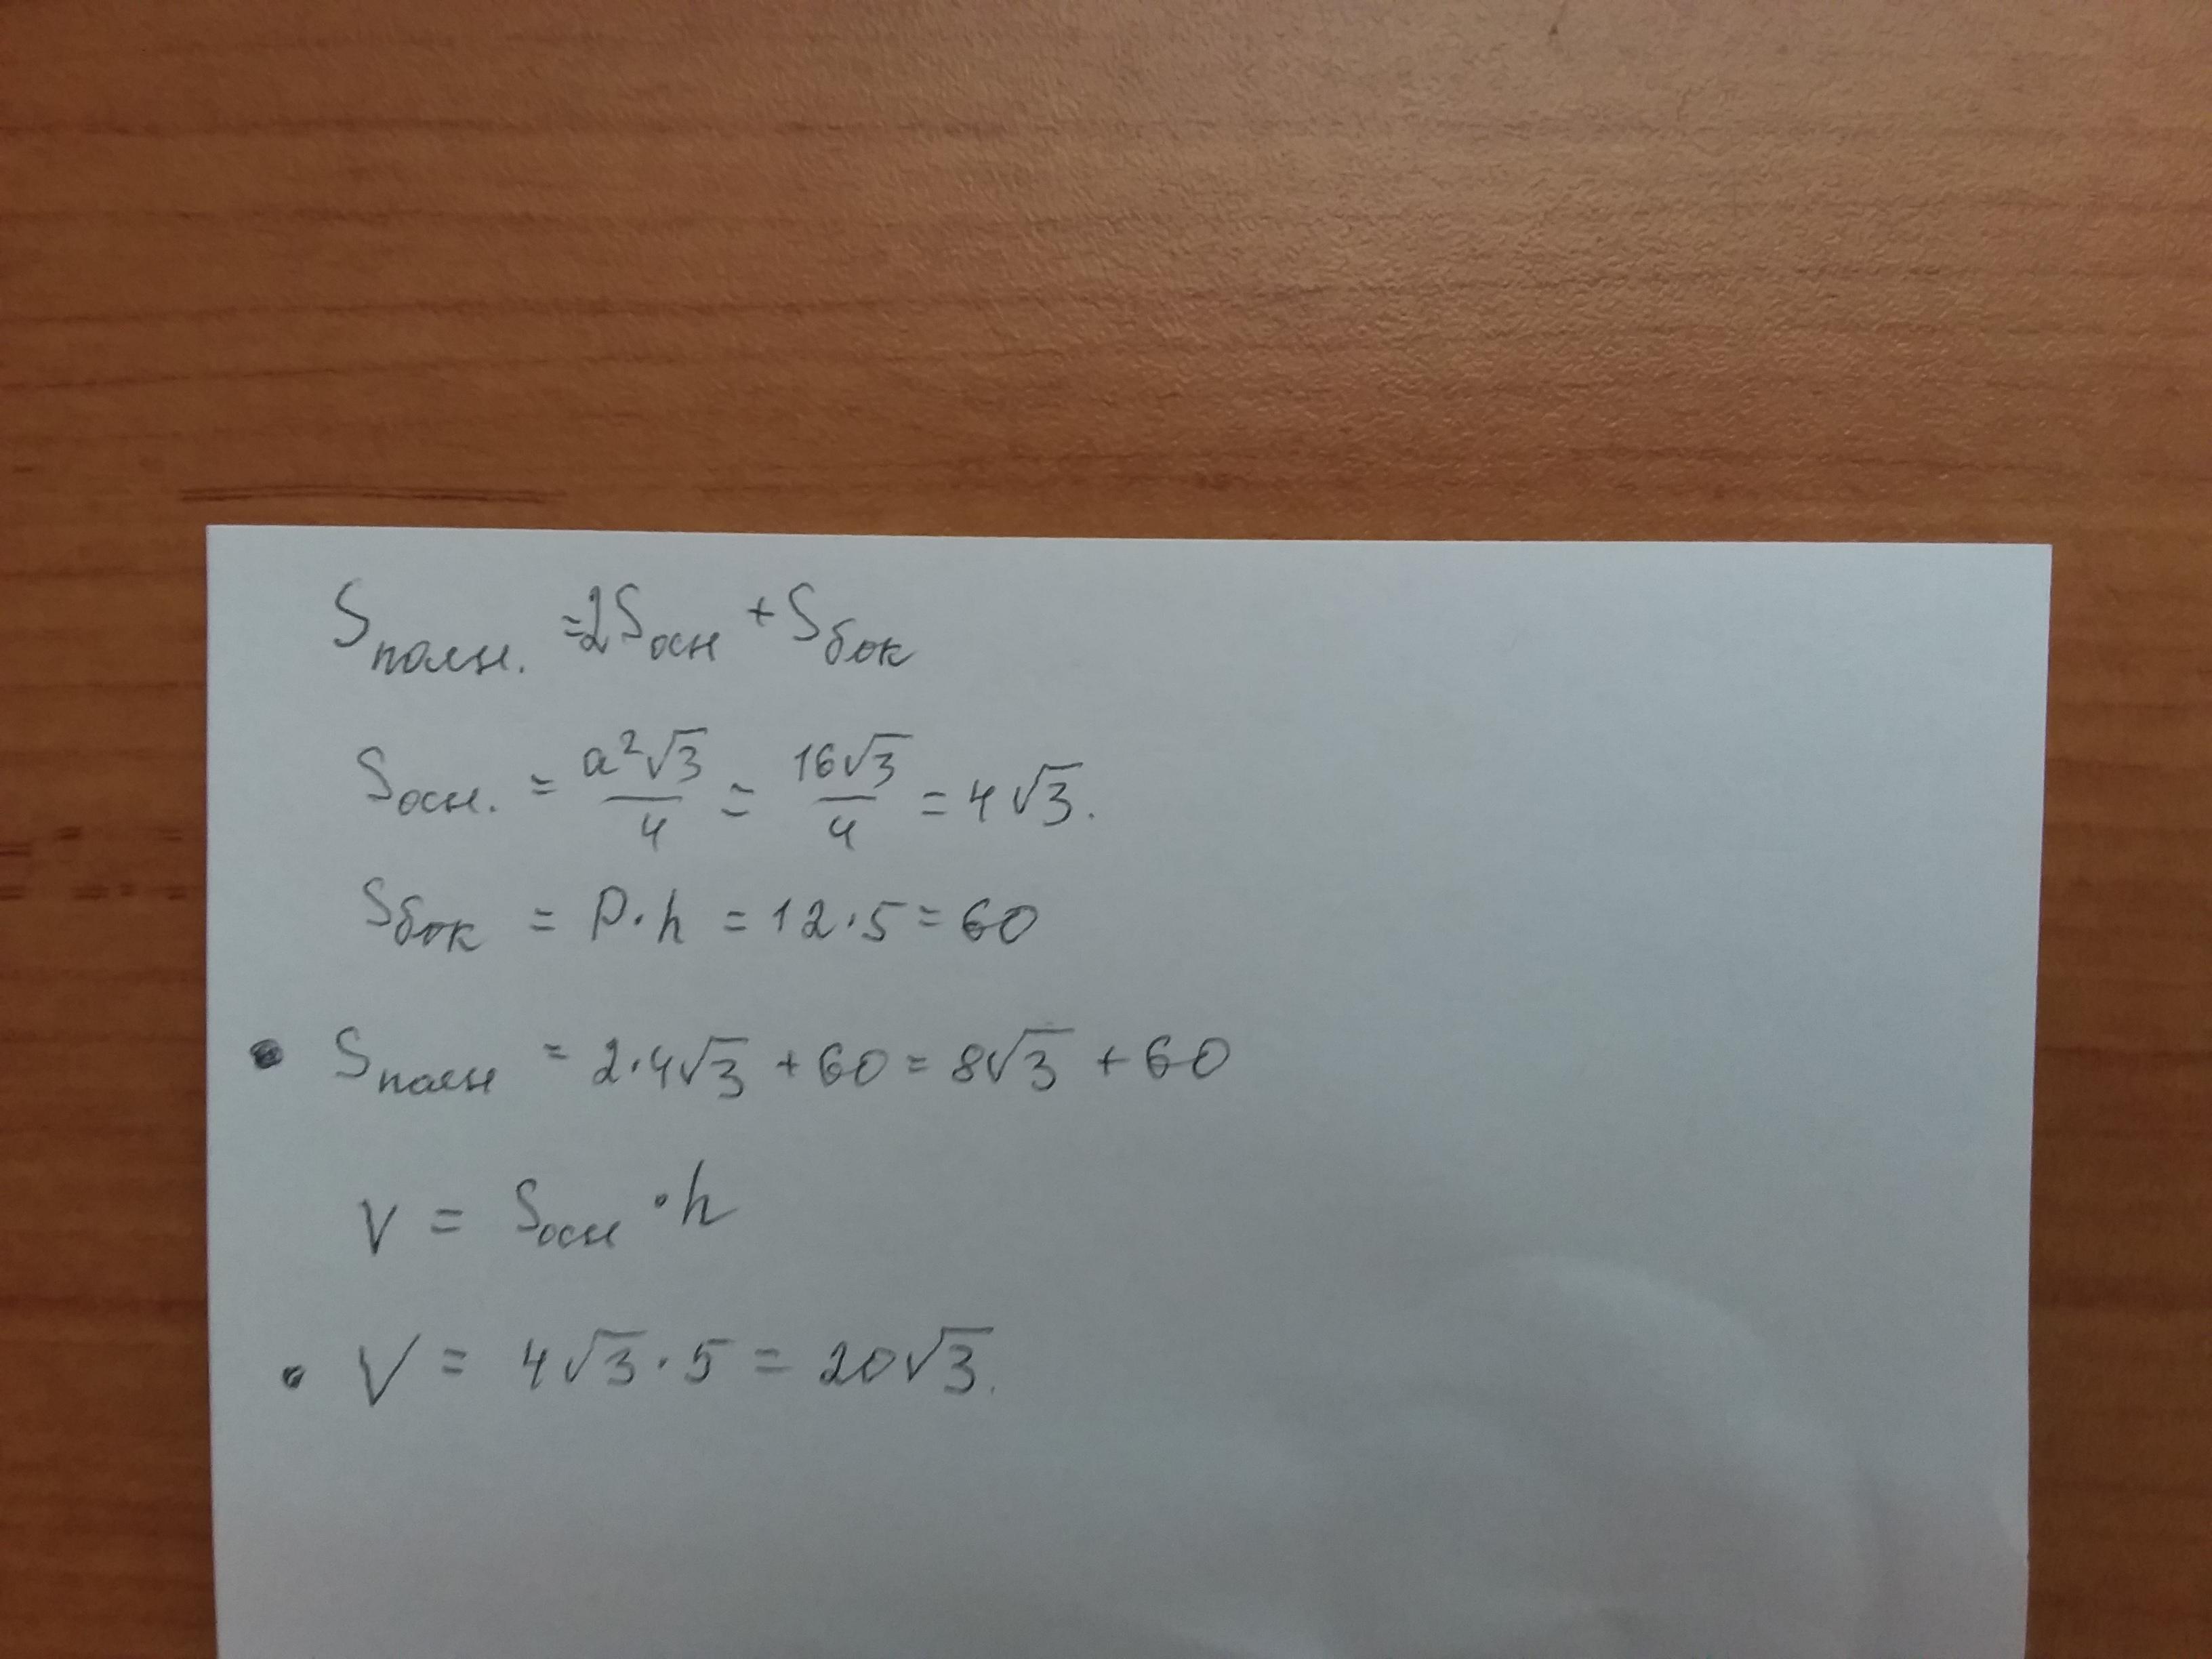 Sполн. = 2Sосн + Sбок
Sосн. = a²√3/4 = 16√3/4 = 4√3.
Sбок = P·h = 12·5 = 60
• Sполн = 2·4√3 + 60 = 8√3 + 60
V = Sосн · h
• V = 4√3 · 5 = 20√3.